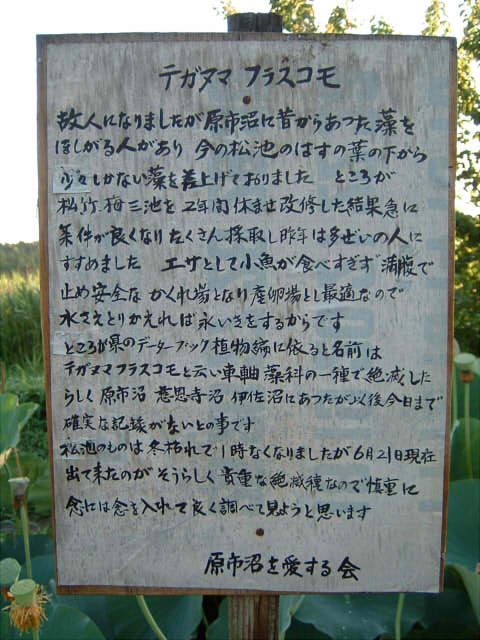 テガヌマ フラスコモ
故人になりましたが原市沼に昔からあった藻を
ほしがる人があり 今の松池のはすの葉の下から
少々しかない藻を差上げておりました ところが
松竹梅三池を 2年間休ませ改修した結果急に
条件が良くなりたくさん採取し昨年は多ぜいの人に
すすめました エサとして小魚が食べすぎず 満腹で
止め安全な かくれ場となり産卵場とし最適なので
水さえとりかえれば永いきをするからです
ところが県のデーターブック 植物編に依ると名前は
テガヌマフラスコモと云い車軸藻科の一種で絶滅した
らしく 原市沼 慈恩寺沼 伊佐沼にあったが以後今日まで
確実な記録がないとの事です
松池のものは冬枯れで1時なくなりましたが6月21日現在
出て来たのがそうらしく 貴重な絶滅種なので慎重に
念には念を入れて良く調べて見ようと思います
原市沼を愛する会